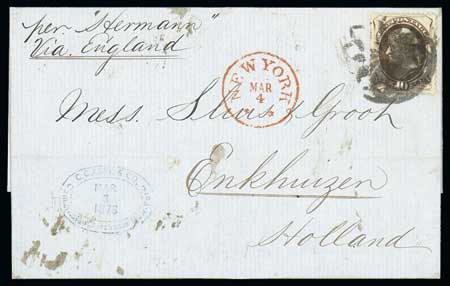 per "Hermann"
Via England
NEW YORK
MAR
4
10
Mess. Sluis & Groot
Enkhuizen
Holland
MAR
3
1876